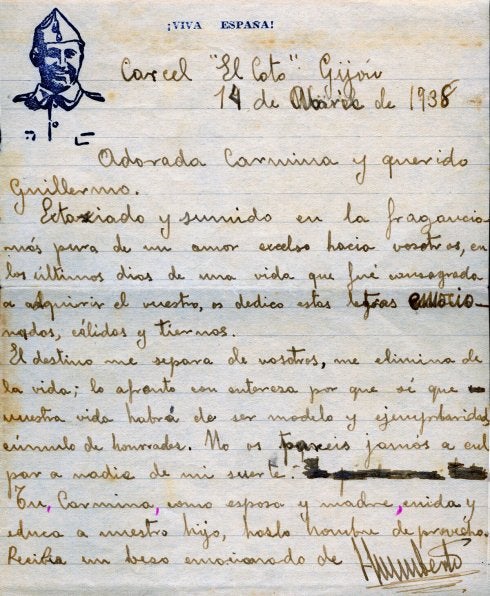 ¡VIVA ESPAÑA!
Carcel "El Coto" Gijón
14 de Abril de 1938
Adorada Carmina y querido
Guillermo.
Extasiado y sumido en la fragancia
más pura de un amor excelso hacia vosotros, en
los últimos dias de una vida que fué consagrada
a adquirir el vuestro, os dedico estas letras emocio-
nadas, cálidas y tiernas.
El destino me separa de vosotros, me elimina de
la vida; lo afronto con entereza por que sé que
vuestra vida habrá de ser modelo y ejemplaridad,
cúmulo de honradez. No os pareis jamás a cul
par a nadie de mi suerte.
Tu, Carmina, como esposa y madre, cuida y
educa a nuestro hijo, hazlo hombre de provecho.
Recibe un beso emocionado de Humberto